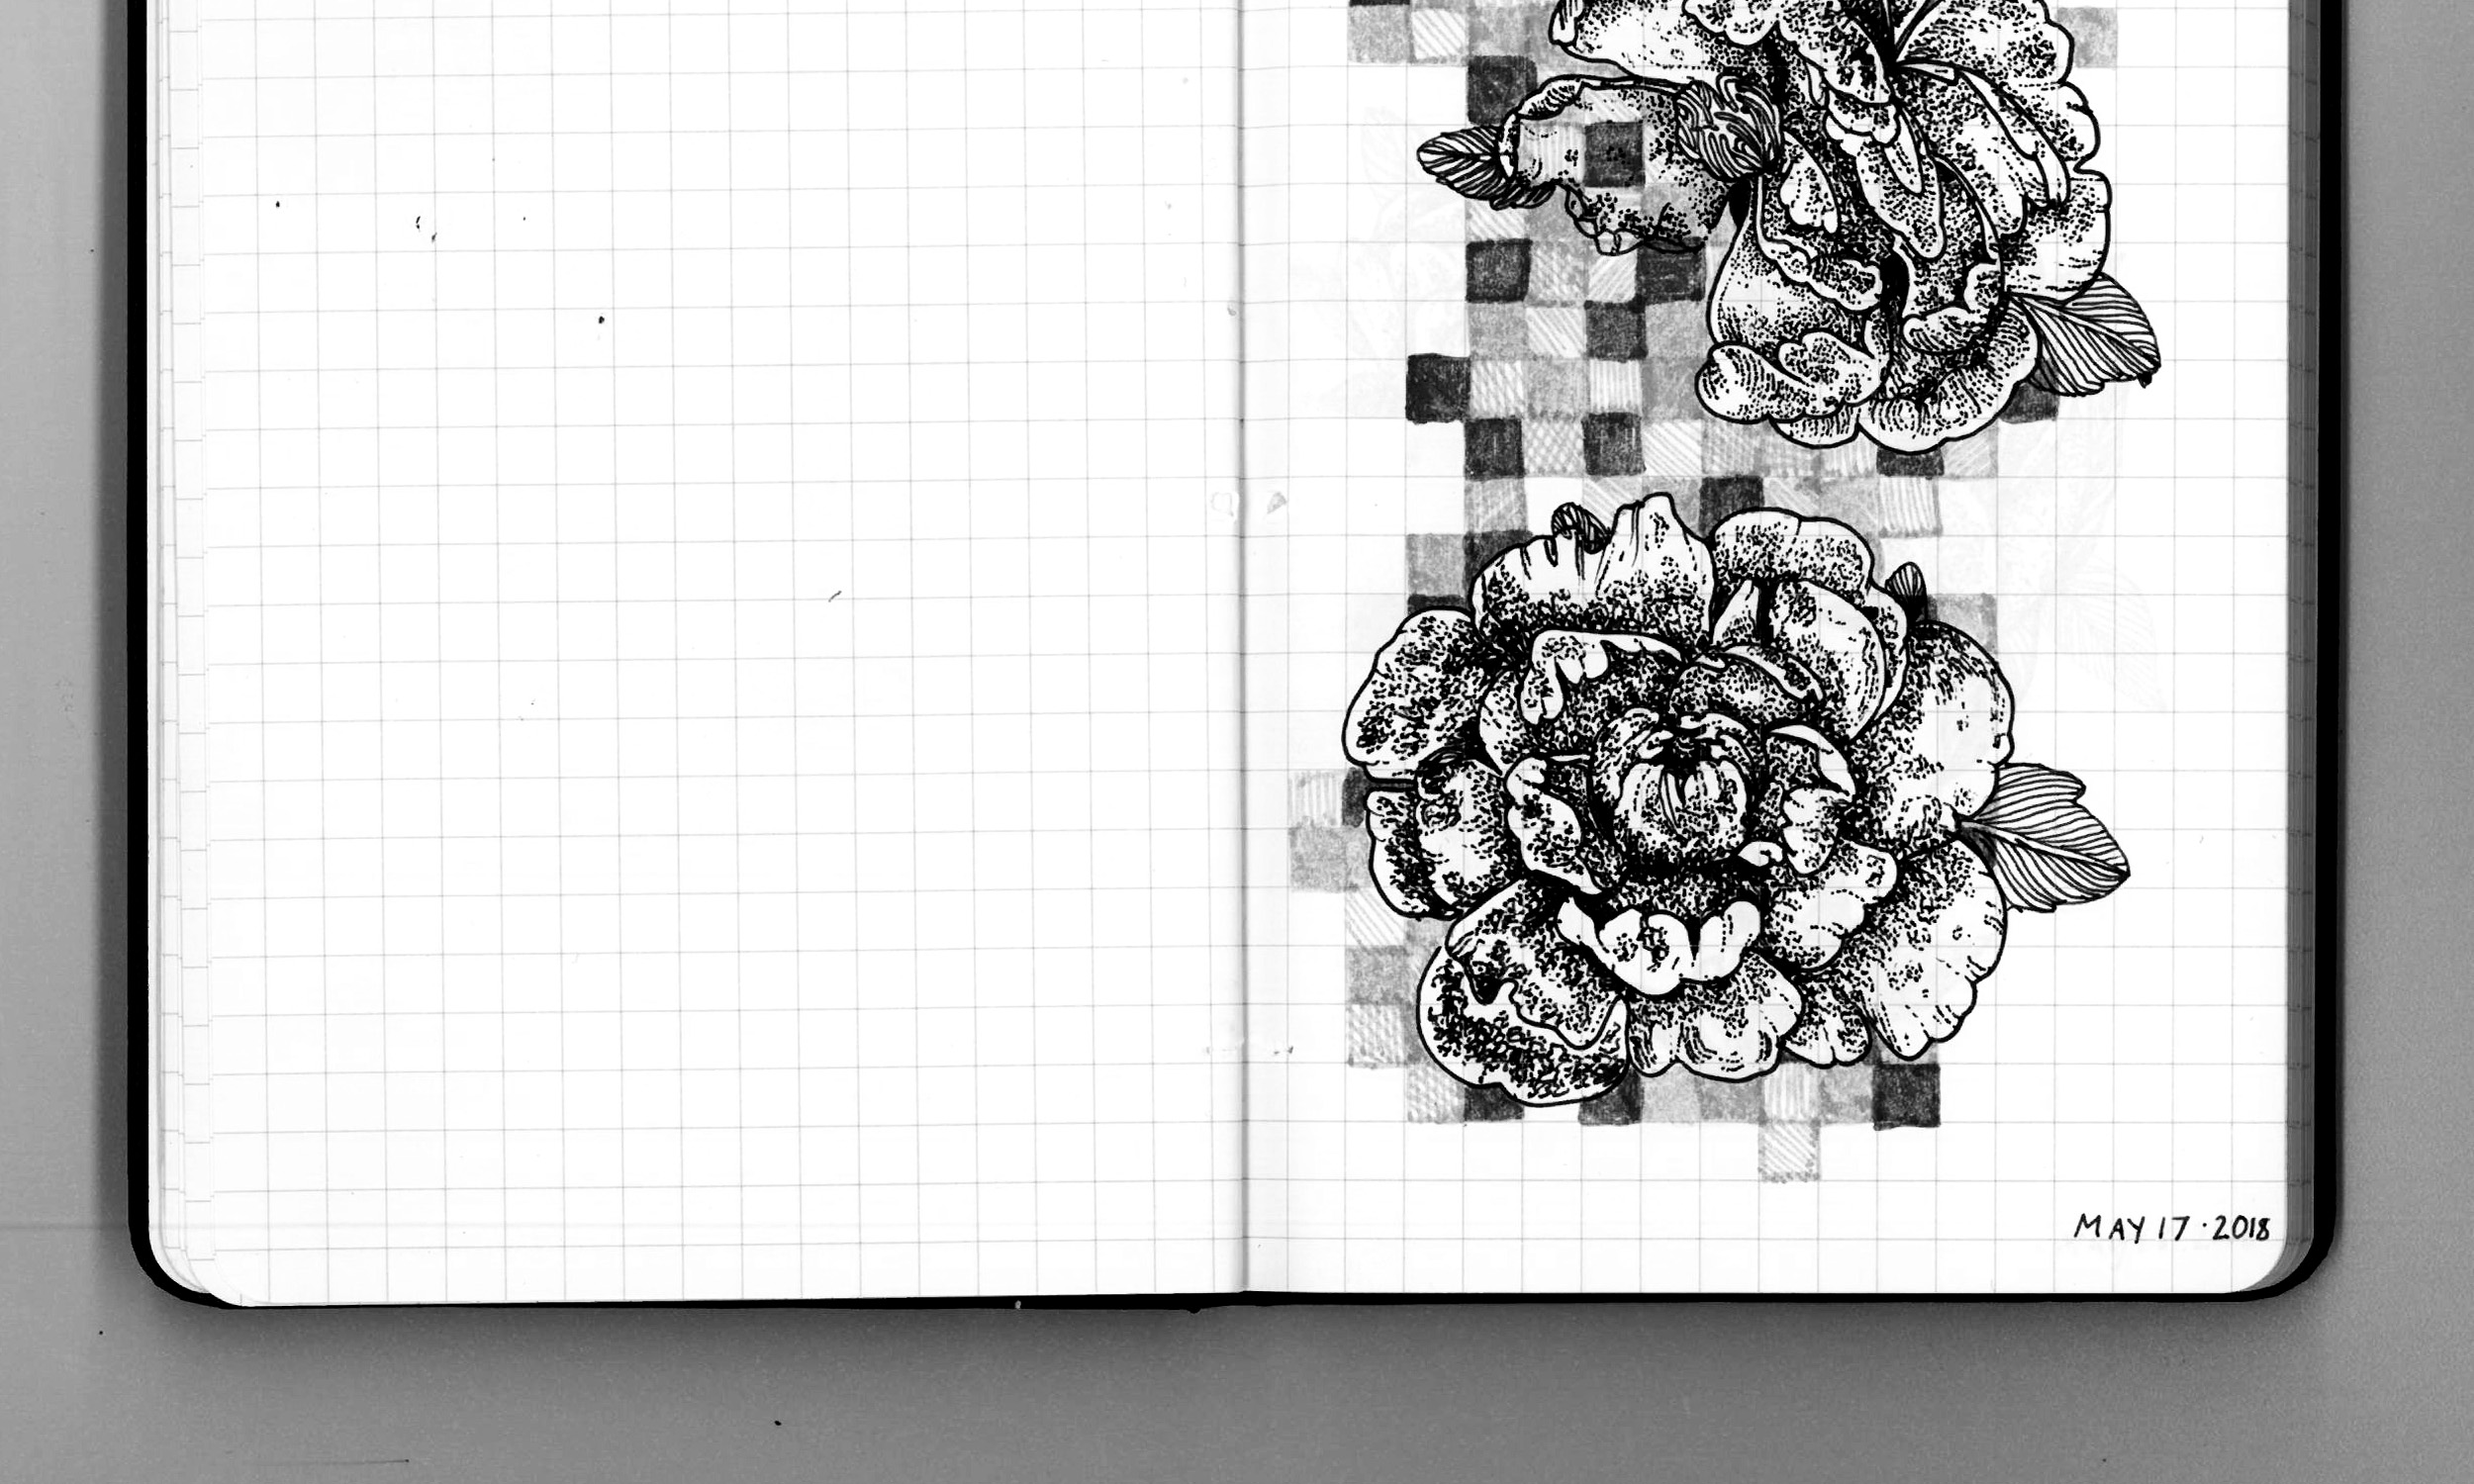 MAY 17 · 2018